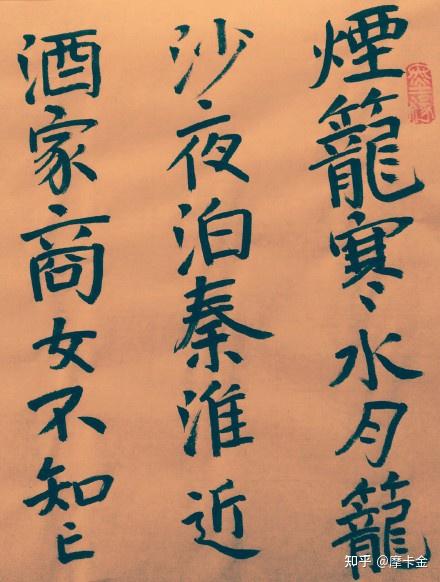 煙籠寒水月籠
沙夜泊秦淮近
酒家商女不知亡
知乎 @摩卡金